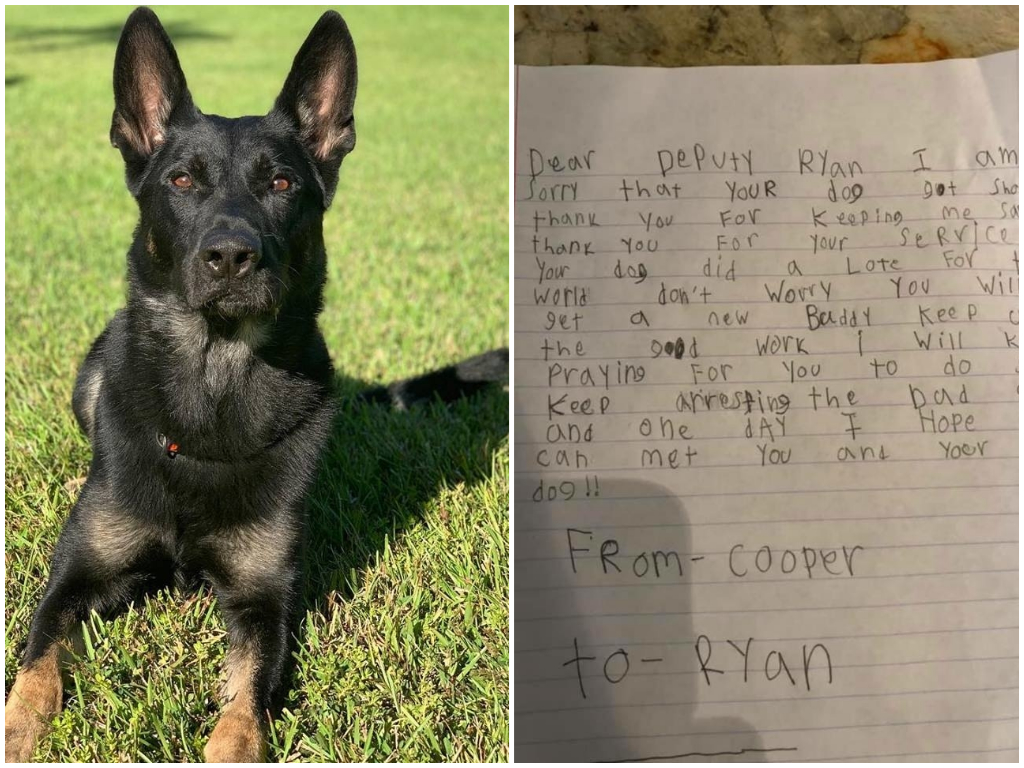 Dear DePUTy RYan I am
Sorry that YouR dog got sho
thank you For Keeping me sa
thank you For your SeRvice
Your dog did a Lote For t
World don't Worry You Will
get a new Buddy Keep
the good work I will k
Praying For You to do
Keep arresting the bad
and one dAY I Hope
can met You and Yoer
dog!!
FRom- cooper
to- RYan